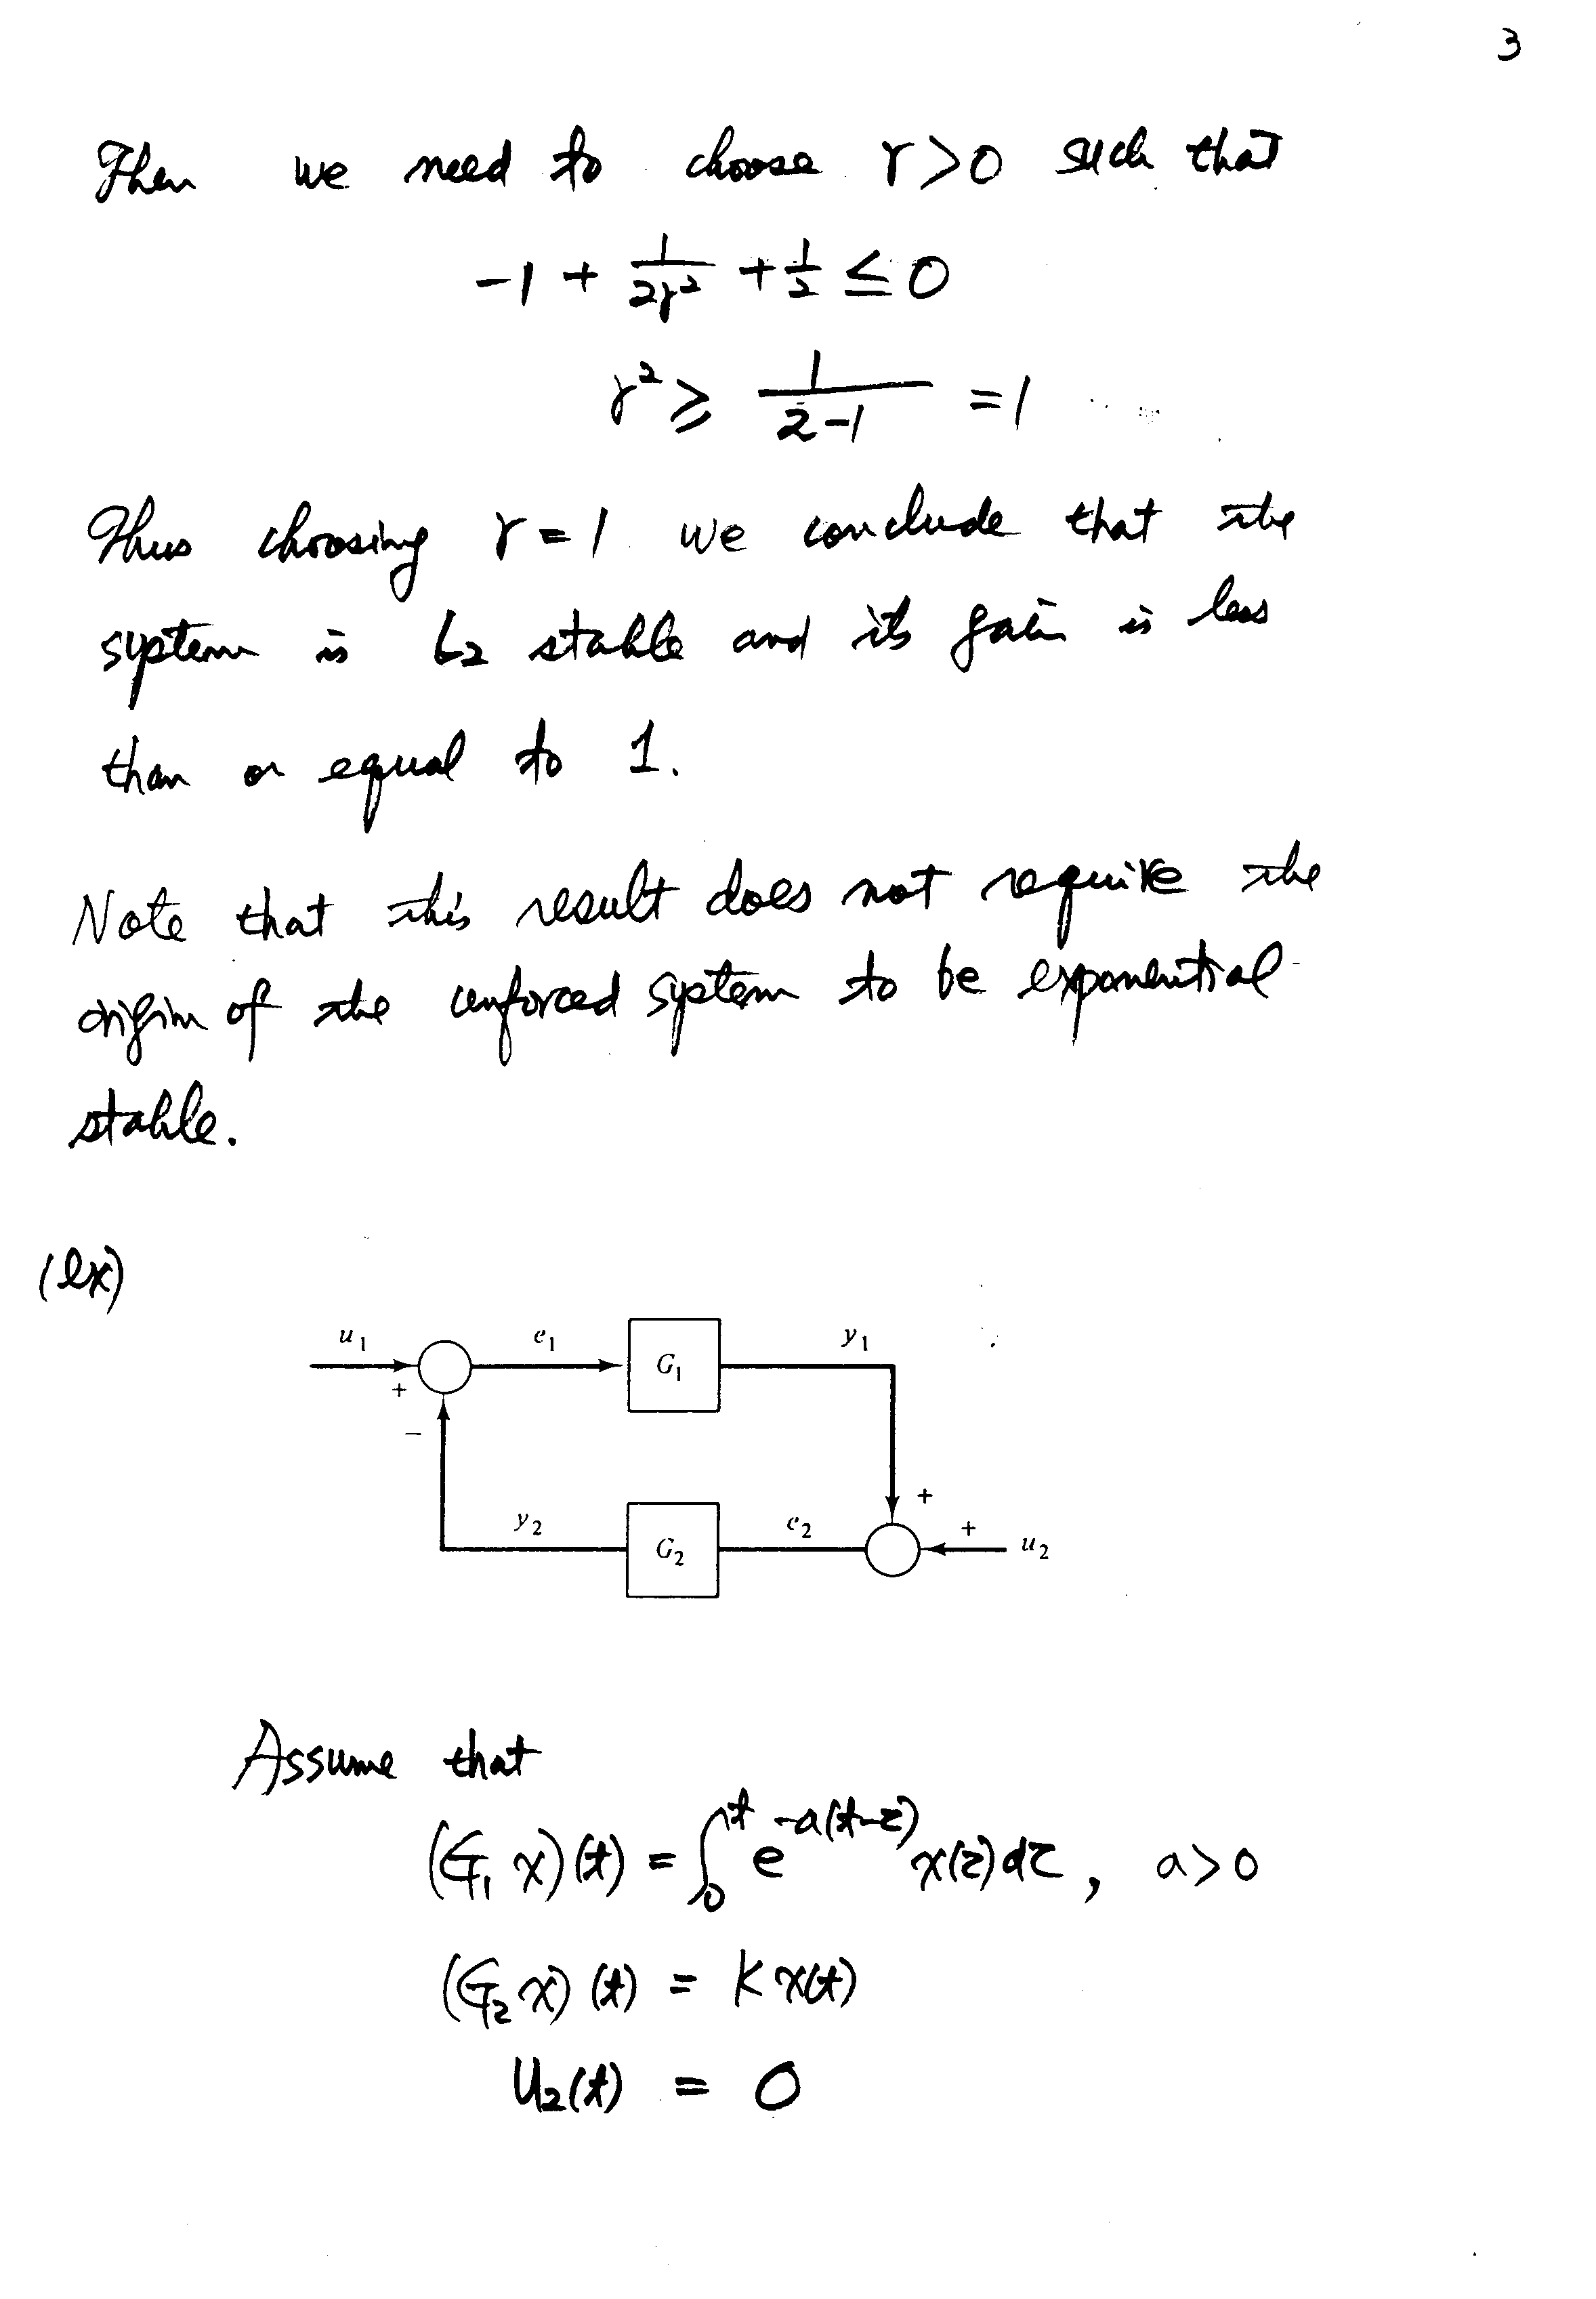 3
Then we need to choose γ>0 such that
-1 + 1/(2γ²) + 1/2 ≤ 0
γ² ≥ 1/(2-1) = 1
Thus choosing γ = 1 we conclude that the
system is L₂ stable and its gain is less
than or equal to 1.
Note that this result does not require the
origin of the unforced system to be exponential
stable.
(ex)
u₁ e₁ G₁ y₁
+
−
+
y₂ G₂ e₂ + u₂
Assume that
(G₁ x)(t) = ∫₀ᵗ e^{-a(t-τ)} x(τ)dτ, a>0
(G₂ x)(t) = K x(t)
U₂(t) = 0